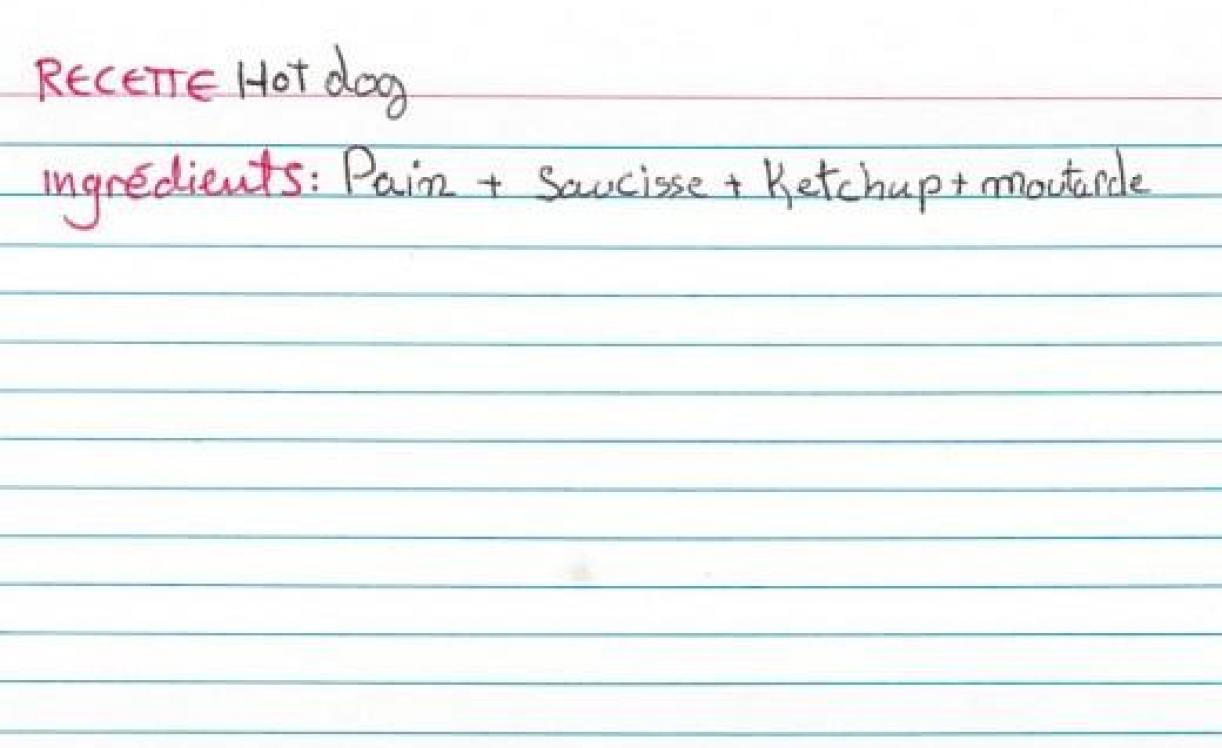 RECETTE Hot dog
ingrédients: Pain + Saucisse + Ketchup + moutarde